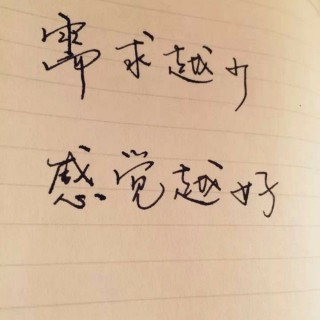 需求越少
感觉越好